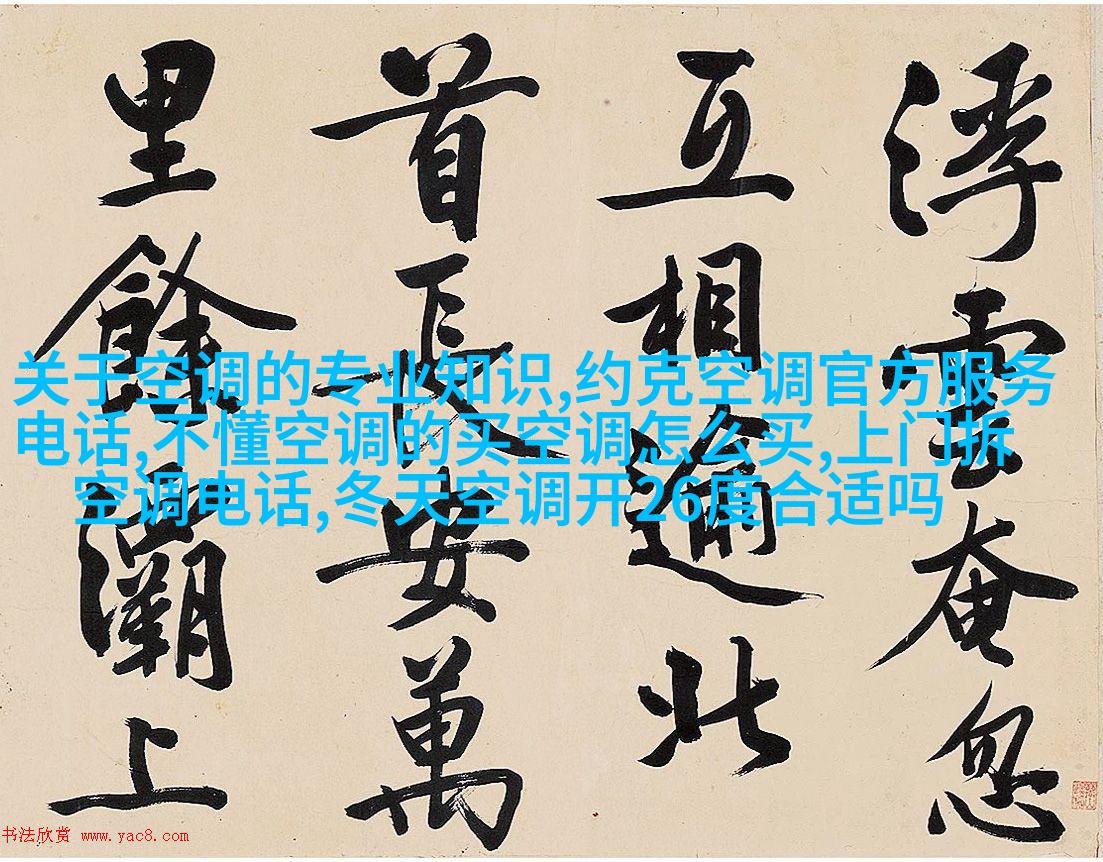 浮雲奄忽
互相逾北
首長安萬
里餘灞上
关于空调的专业知识,约克空调官方服务
电话,不懂空调的买空调怎么买,上门拆
空调电话,冬天空调开26度合适吗
书法欣赏 www.yac8.com